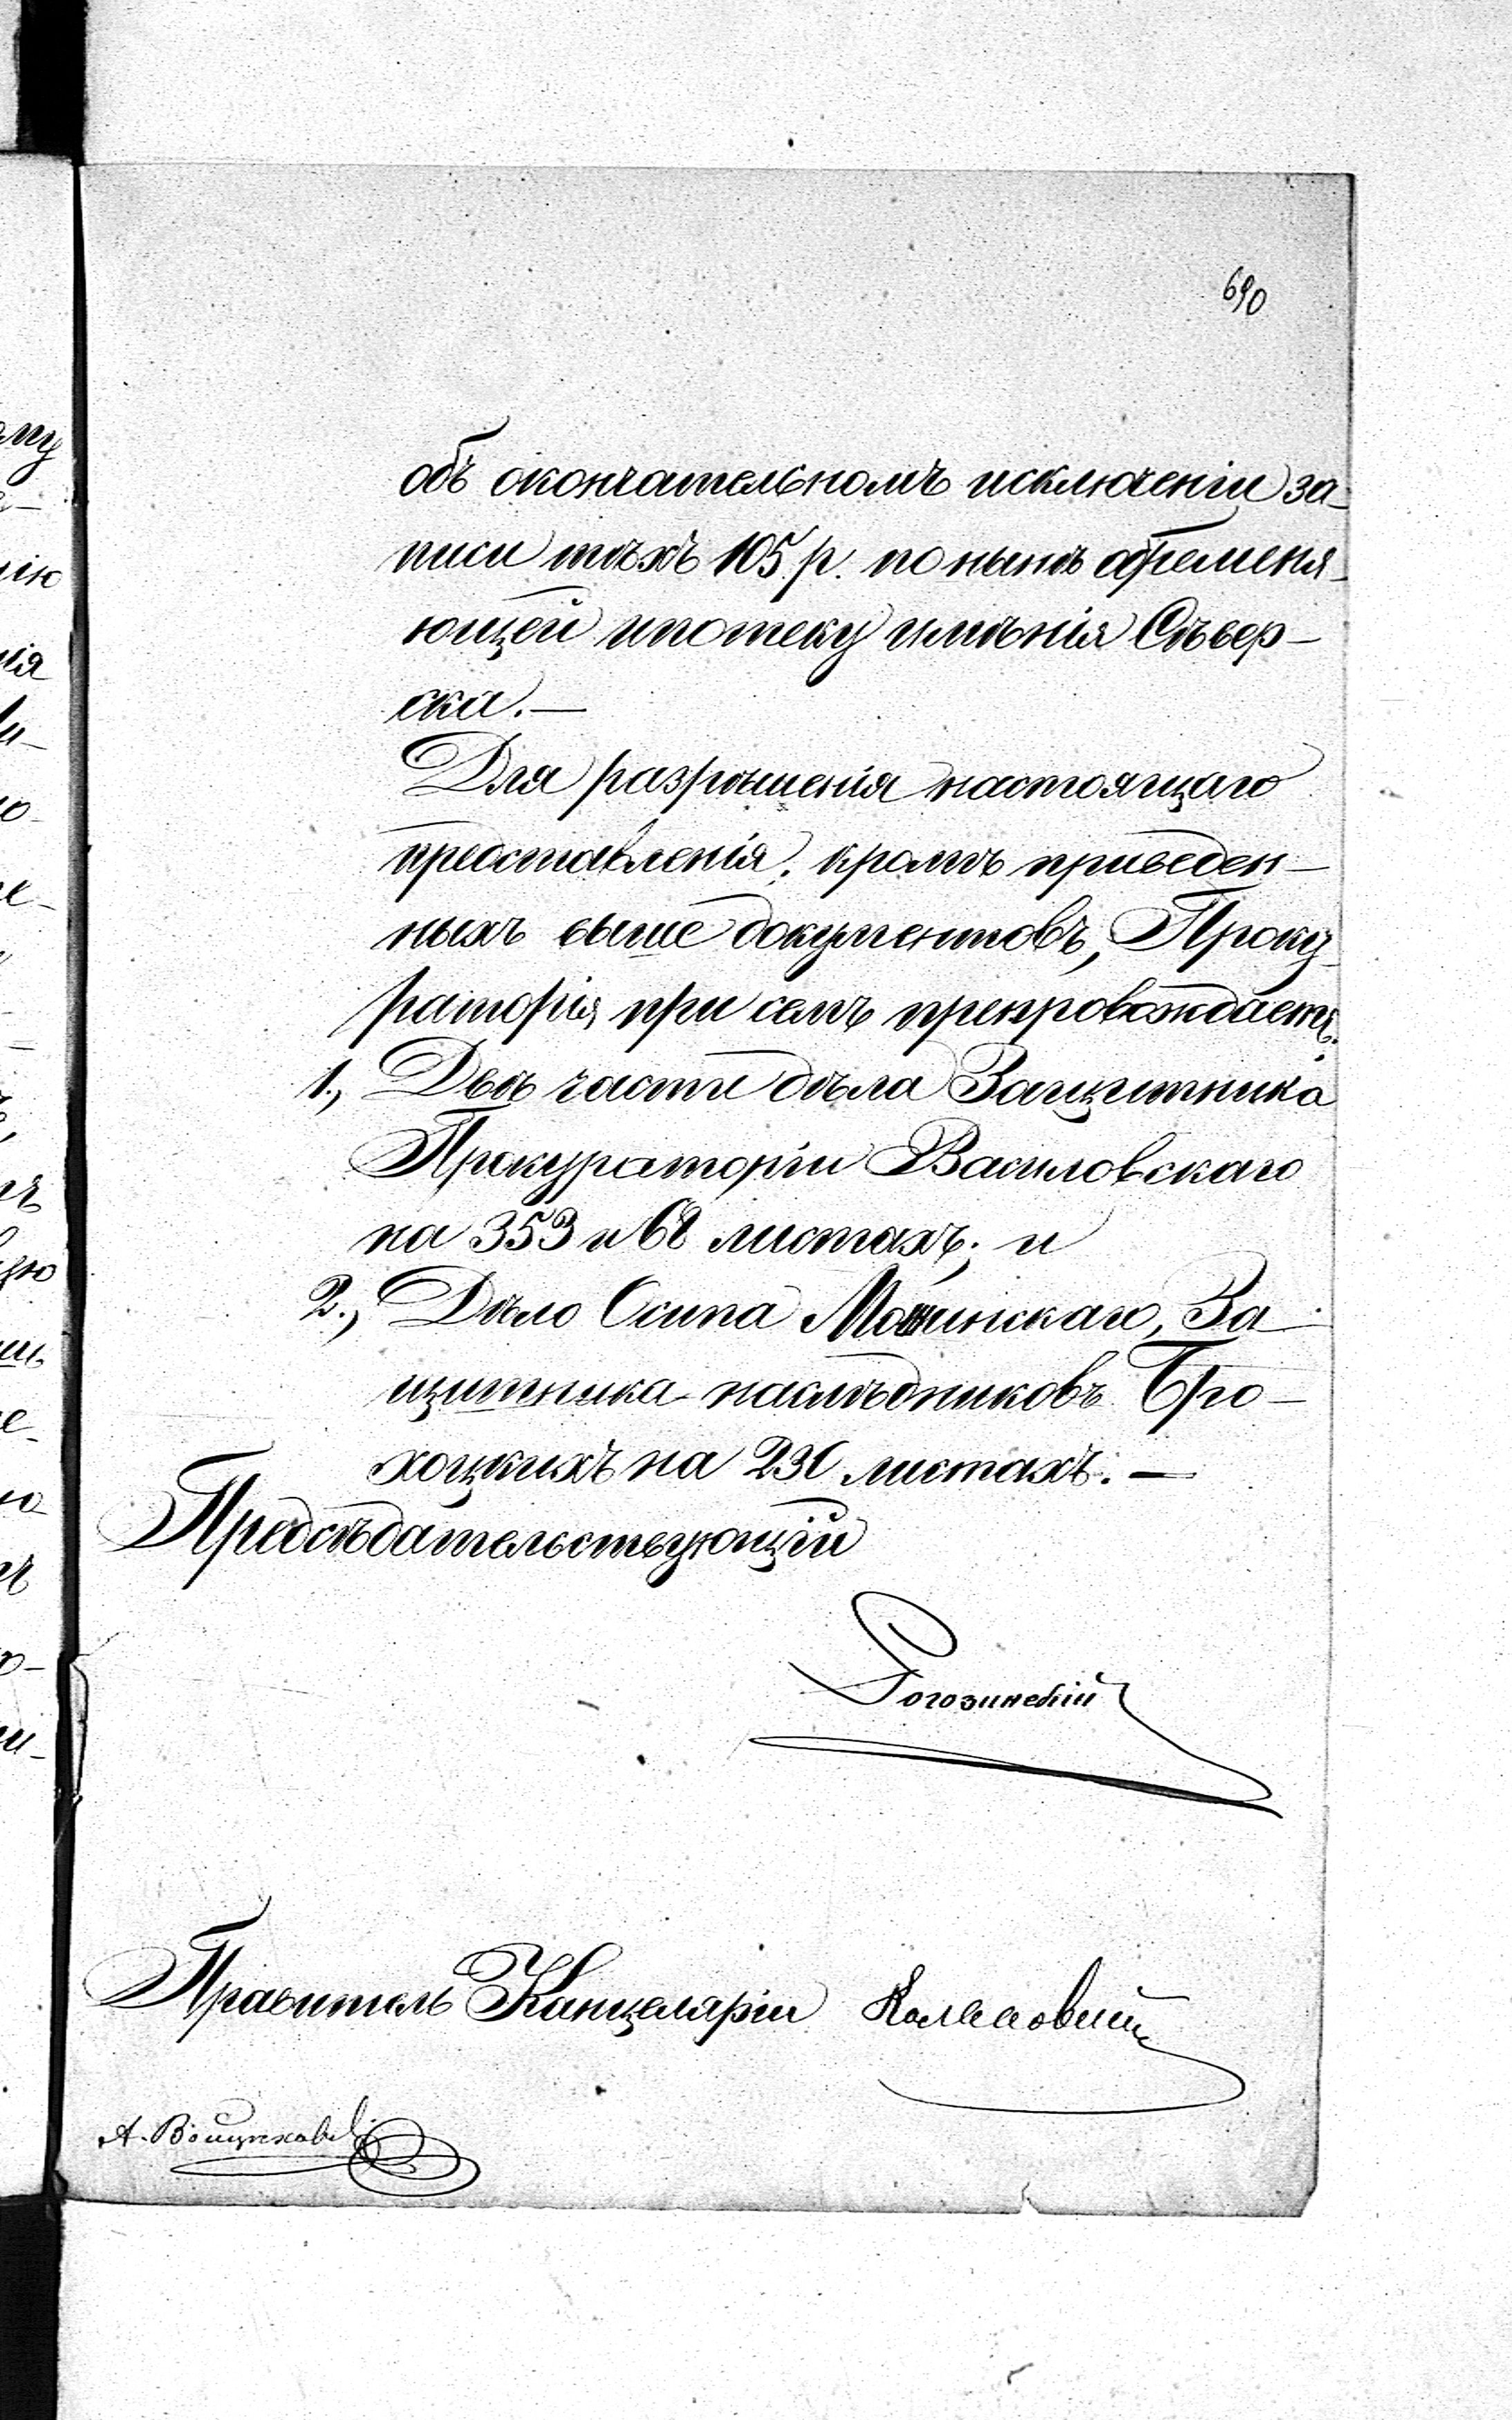 690
объ окончательномъ исключеніи за-
писи тѣхъ 105 р. по нынѣ обременя-
ющей ипотеку имѣнія Сѣвер-
ска.—
Для разрѣшенія настоящаго
представленія, кромѣ приведен-
ныхъ выше документовъ, Проку-
раторія при семъ препровождаетъ:
1., Двѣ части дѣла Защитника
Прокураторіи Василовскаго
на 353 и 68 листахъ; и
2., Дѣло Осипа За-
щитника наслѣдниковъ Бро-
хоцкихъ на 230 листахъ.—
Предсѣдательствующій
Рогозинскій
Правитель Канцеляріи
А.